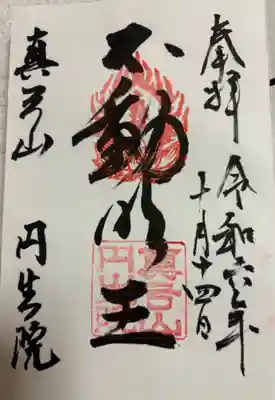 奉拝
令和六年
十月十四日
不動明王
真弓山
円生院
真弓山
円生院